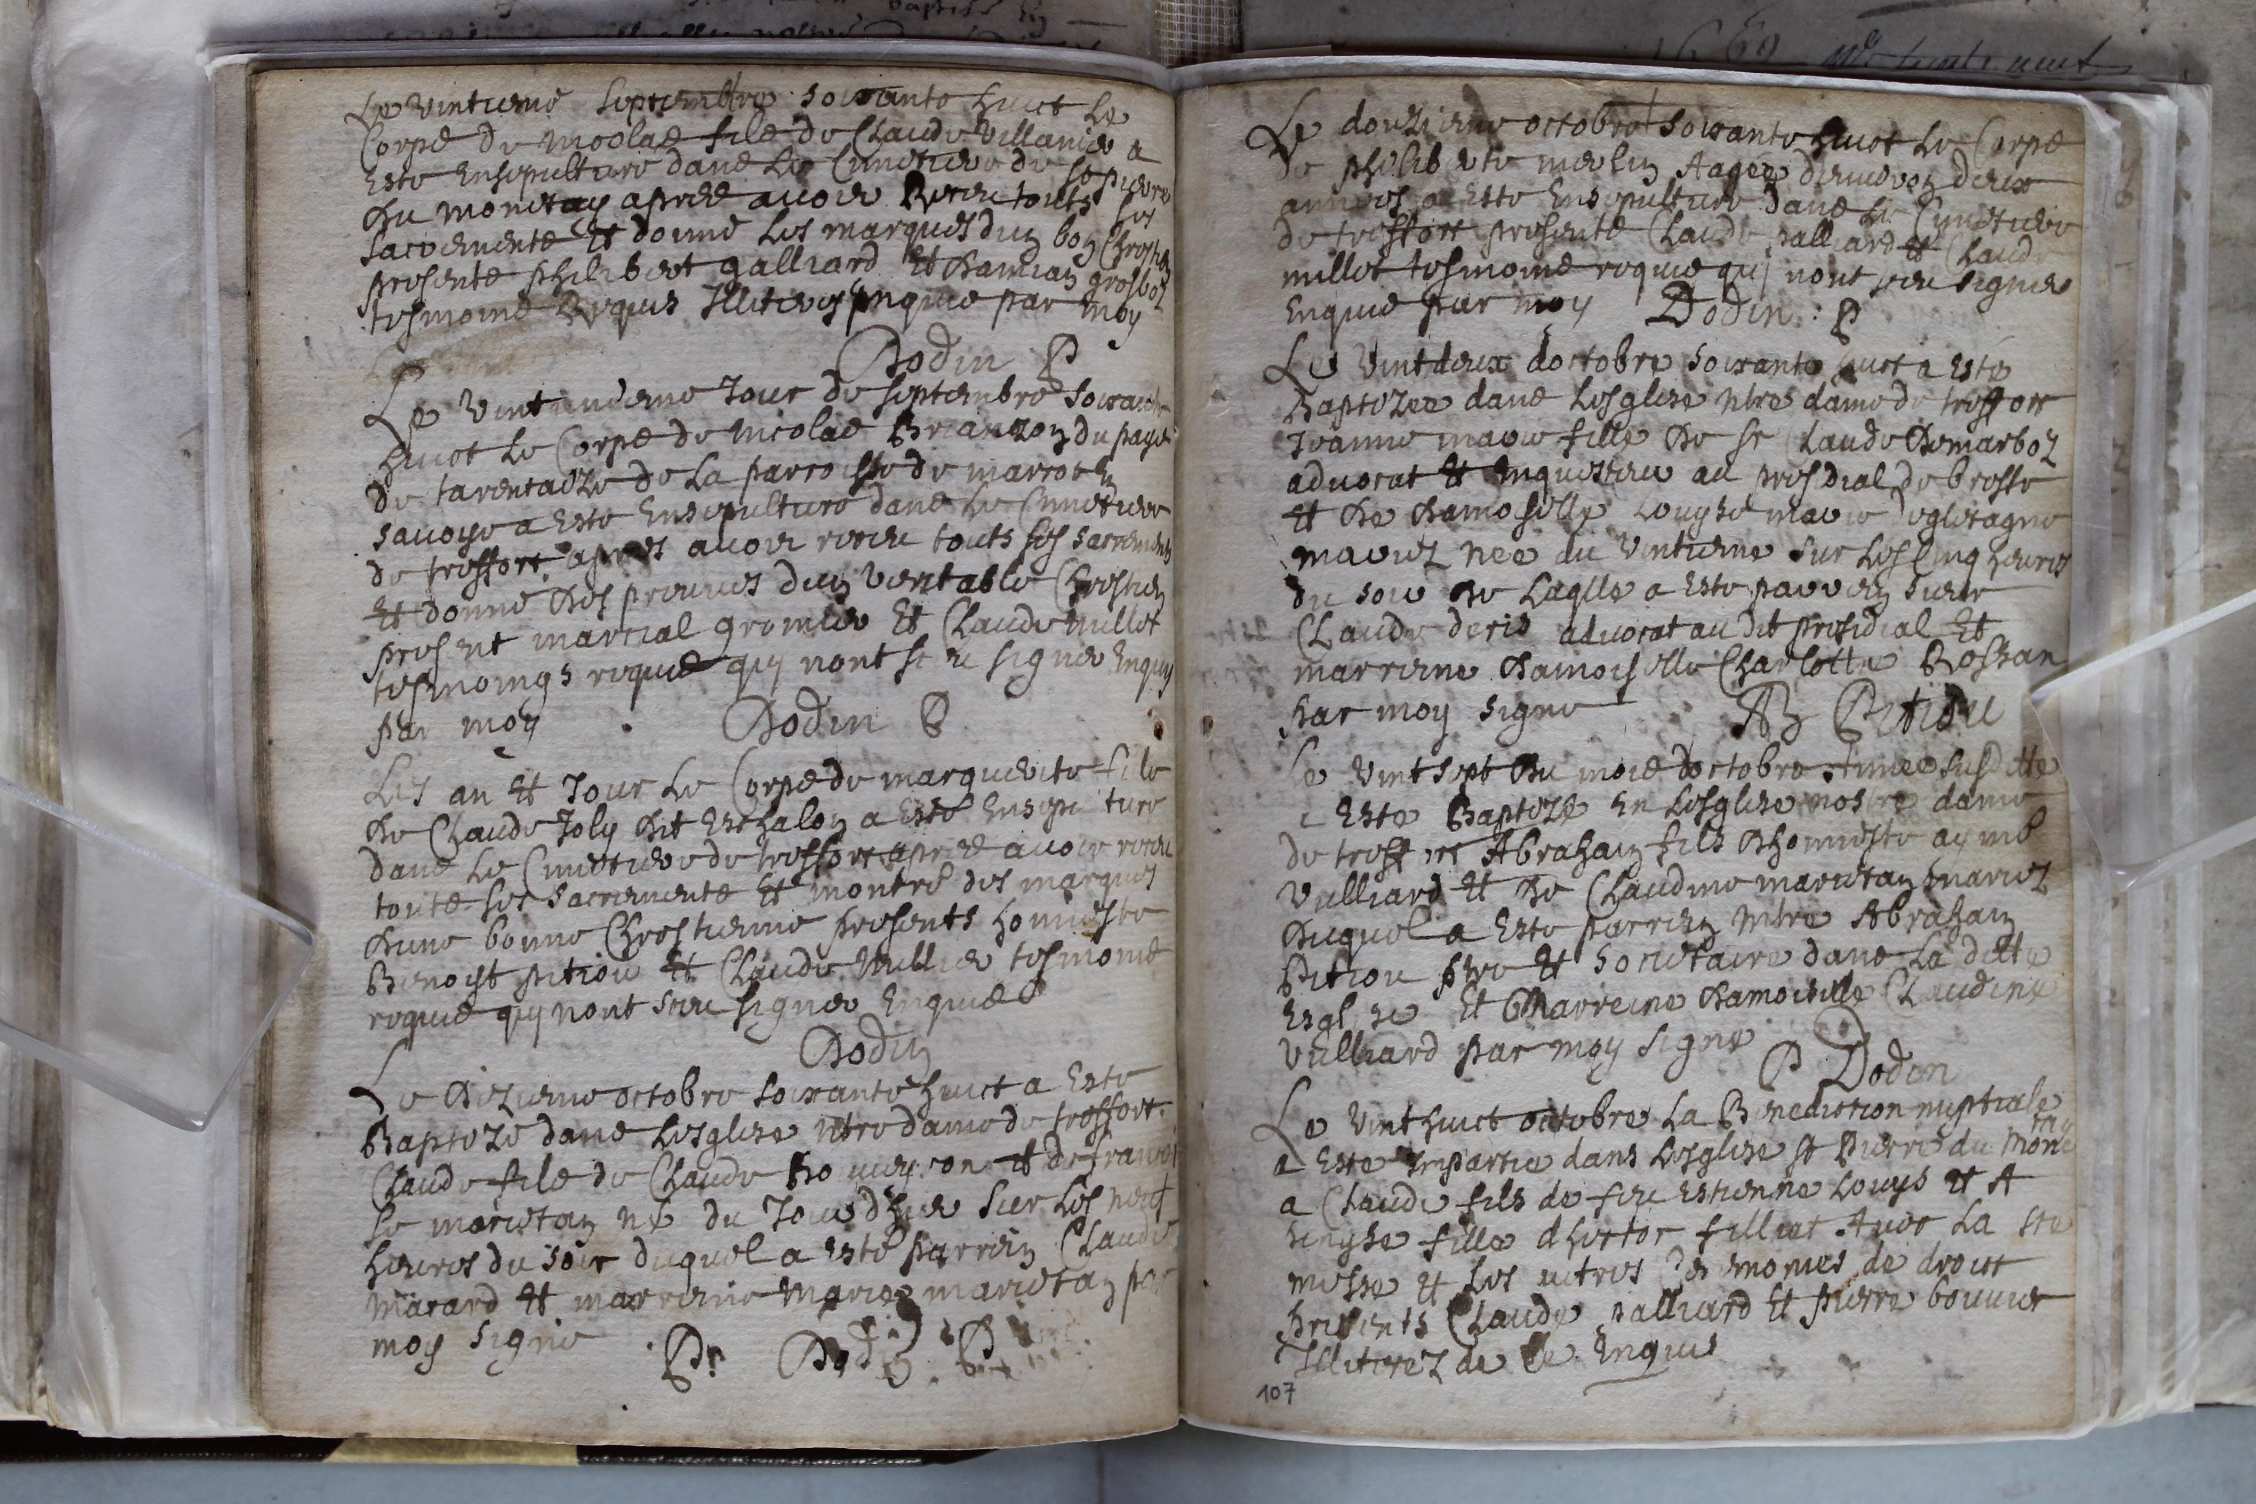 Le Vintieme septembre soixante huict le
Corps de nicolas fils de Claude Villanier a
Este Ensepulture dans le Cimetiere de st pierre
Du monetay apres avoir Receu touts ses
sacrements Et donne Les marques dun bon Chrestien
presents philibert galliard Et Damian grosboz
tesmoins Requis Illiteres enquis par moy
Dodin P
Le Vint unieme Jour de septembre soixante
huict le Corps de nicolas Brianzon du pays
de tarentaize de La parroisse de marcot En
savoye a Este Ensepulture dans Le Cimetiere
de treffort apres avoir receu touts ses sacrements
Et donne Des preuves dun veritable Chrestien
present martial gromier Et Claude millet
tesmoings requis quy nont sceu signer Enquis
par moy Dodin P
Les an Et Jour Le Corps de marguerite fille
De Claude Joly Dit Eschalon a Esté Ensepulture
dans Le Cimetiere de treffort apres avoir receu
touts ses sacrements Et montré des marques
Dune bonne Chrestienne presents honneste
Benoist pition Et Claude millier tesmoins
requis quy nont sceu signer Enquis
Dodin
Le Dizieme octobre soixante huict a Este
Baptize dans Lesglise ntre dame de treffort
Claude fils de Claude Bouveyron et de francoi
se marietan né du Jour dhier sur les neuf
heures du soir duquel a esté parrein Claude
marard et marreine Marie marietan par
moy signe Dodin P
Le douzieme octobre soixante huict Le Corps
De philiberte merlin Aagee denviron deux
annees a Este Ensepulture dans Le Cimetiere
de treffort presents Claude palliard Et Claude
millet tesmoins requis quj nont sceu signer
Enquis par moy Dodin : P
Le Vint deux doctobre soixante huict a Esté
Baptizee dans Lesglise ntre dame de treffort
Jeanne marie fille De sr Claude Demarboz
advocat Et Enquesteur au presdial de bresse
Et De Damoiselle Louyse marie degletagne
mariez nee du vintieme sur Les cinq heures
du soir De Laqlle a Este parrein sieur
Claude deris advocat au dit presidial Et
marreine Damoiselle Charlotte Rossan
par moy signe Petion
Le vint sept Du mois doctobre Annee susditte
a Este Baptizé En Lesglise nostre dame
de treffort Abraham fils Dhonneste aymé
Vulliard Et De Claudine marietan mariez
Duquel a Este parrein Mtre Abraham
Pition ptre Et societaire dans La ditte
Esglise Et Marreine Damoiselle Claudine
Vulliard par moy signe
P Dodin
Le vint huict octobre La Benediction nuptiale
a Este Impartie dans Lesglise st Pierre du Mone
tay
a Claude fils de feu Estienne Louys Et A
fille dhector filliat Avec La ste
messe et Les autres Ceremonies de droict
presents Claude palliard Et pierre bouvier
Illiterez de ce Enquis
107